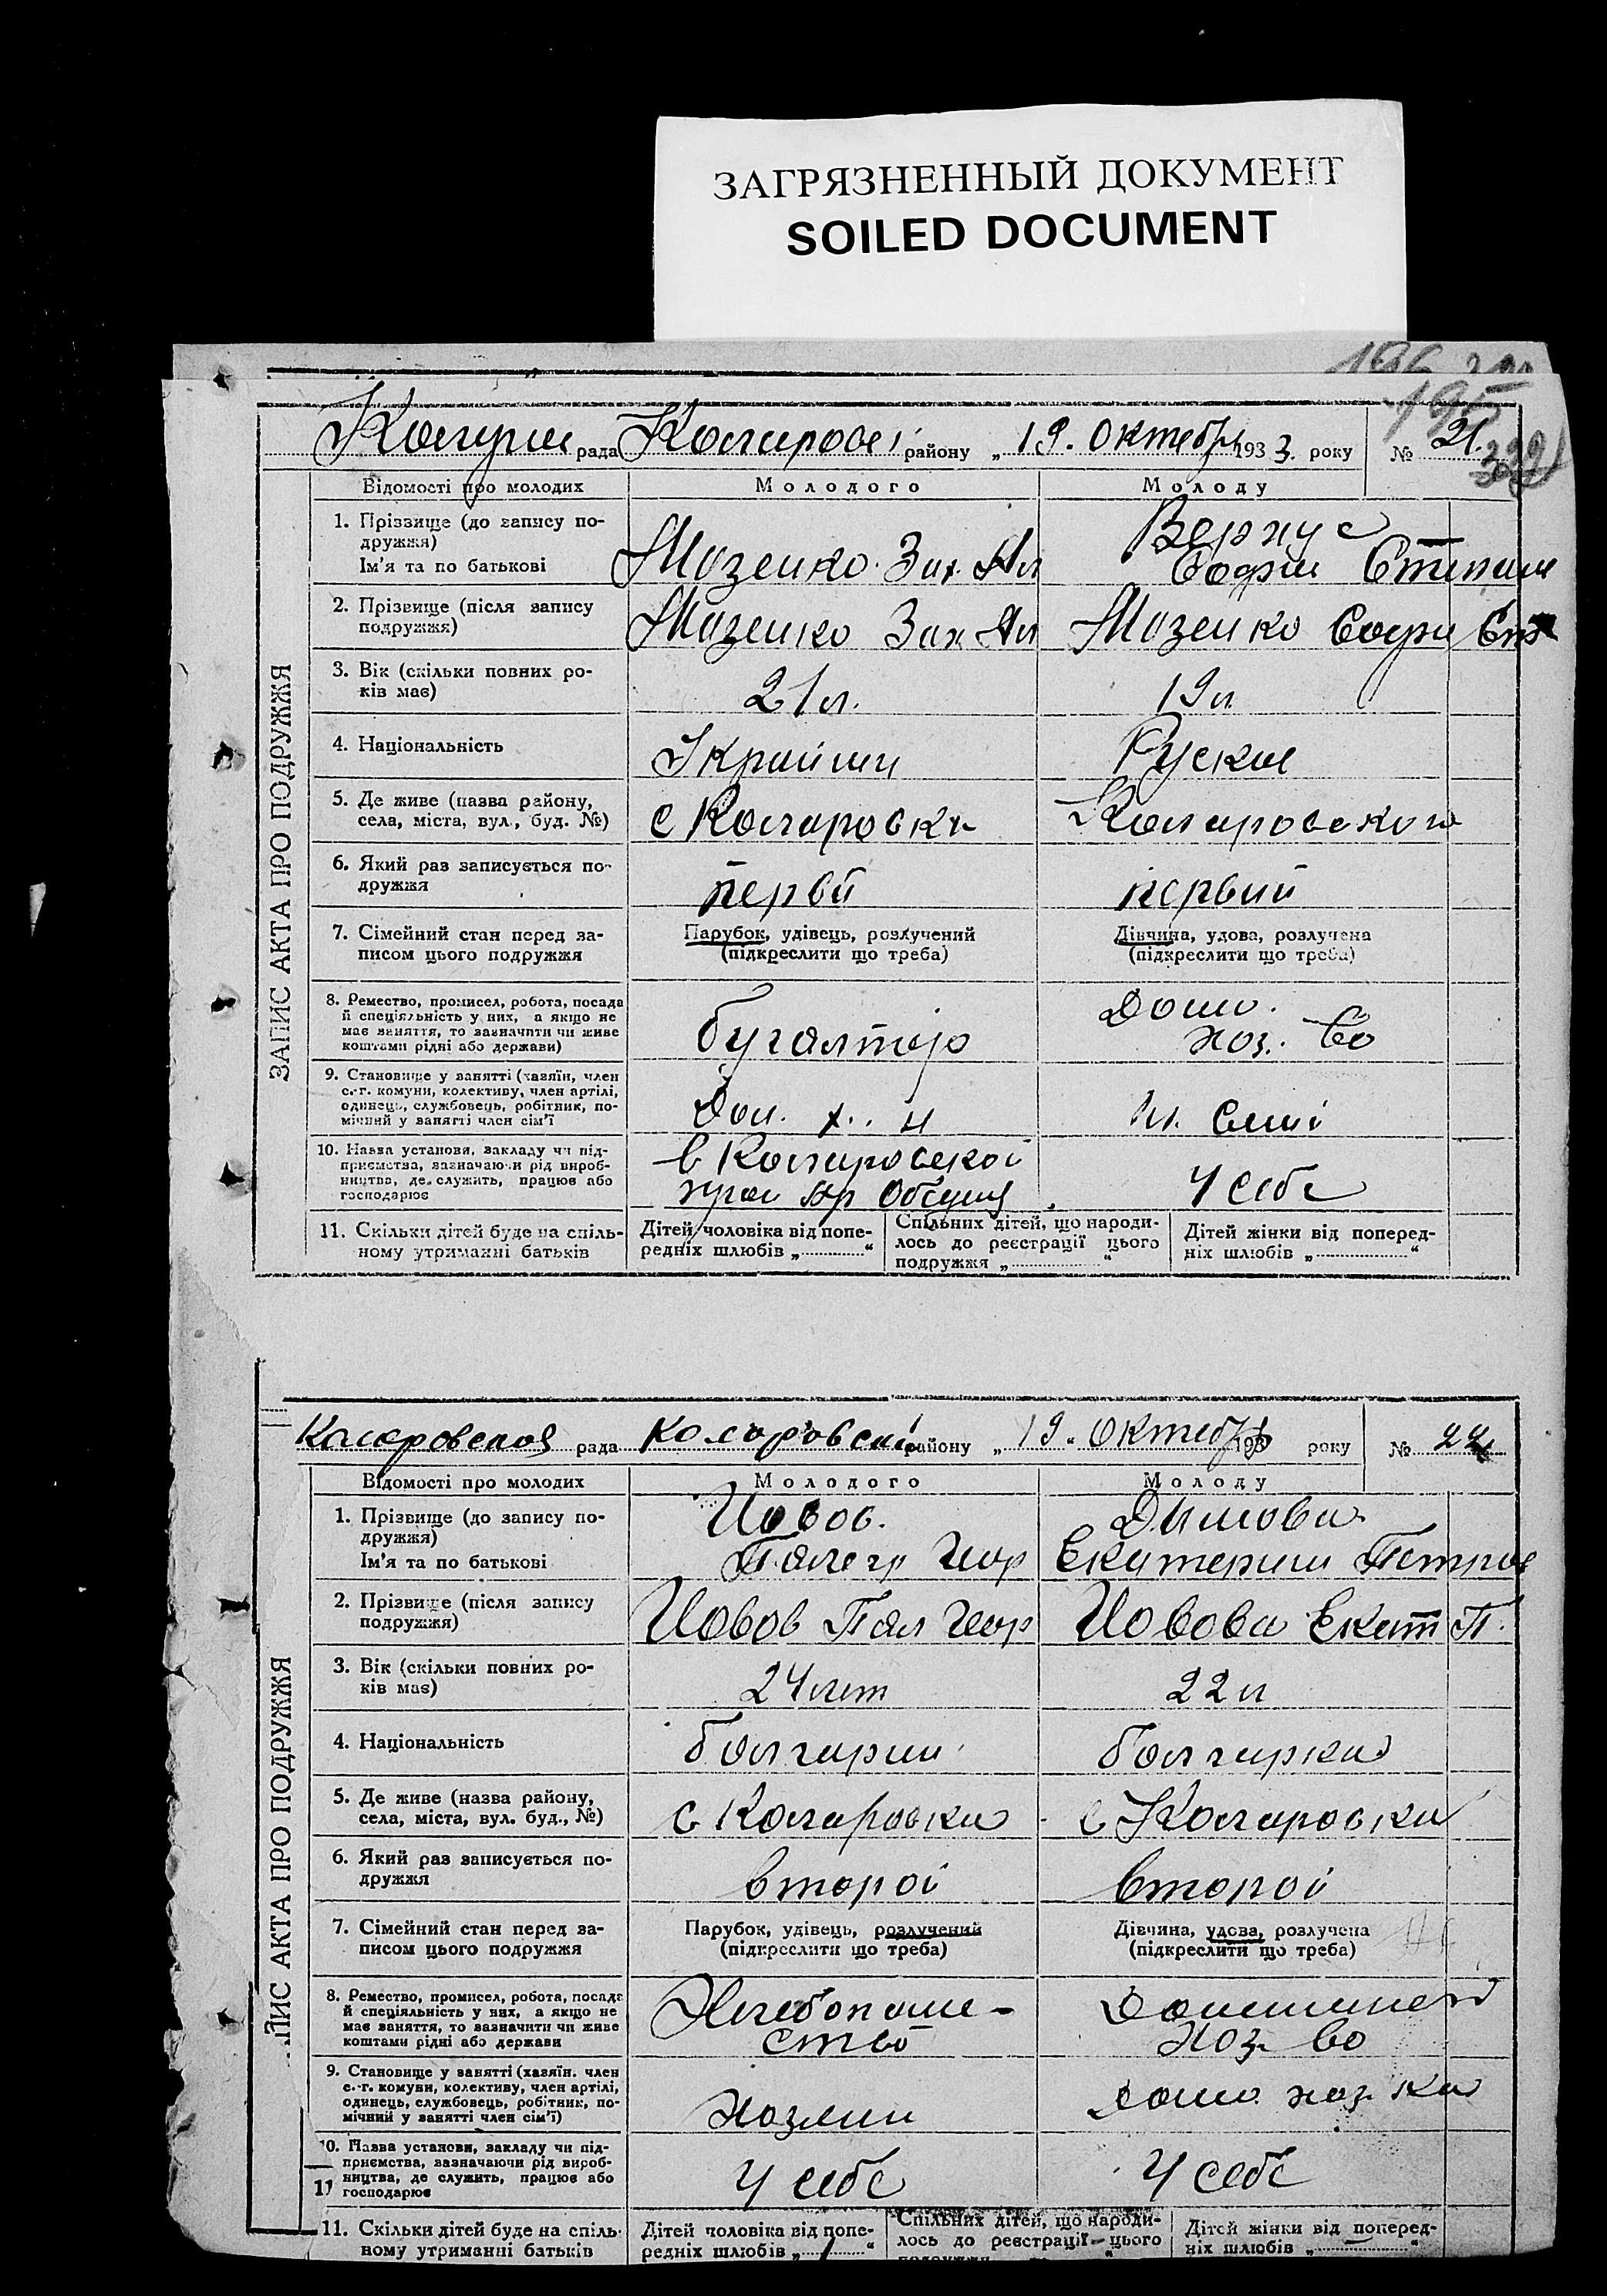 ЗАГРЯЗНЕННЫЙ ДОКУМЕНТ
SOILED DOCUMENT
195
рада району „ 19. Октебр 1933. року № 21.
322
ЗАПИС АКТА ПРО ПОДРУЖЖЯ
Відомості про молодих Молодого Молоду
1. Прізвище (до запису по-
дружжя)
Ім'я та по батькові
Мазенко Зах
Софии Степан
2. Прізвище (після запису
подружжя)
Мазенко Зах Мазенко Софи
3. Вік (скільки повних ро-
ків має)
21 л. 19 л
4. Національність
Руская
5. Де живе (назва району,
села, міста, вул., буд. №)
с Коларовки Коларовского
6. Який раз записується по-
дружжя
первй первий
7. Сімейний стан перед за-
писом цього подружжя
Парубок, удівець, розлучений
(підкреслити що треба)
Дівчина, удова, розлучена
(підкреслити що треба)
8. Ремество, промисел, робота, посада
й спеціяльність у них, а якщо не
має заняття, то зазначити чи живе
коштами рідні або держави)
бугалтер
Дом.
хоз. во
9. Становище у занятті (хазяїн, член
с.-г. комуни, колективу, член артілі,
одинець, службовець, робітник, по-
мічний у занятті член сім'ї
10. Назва установи, закладу чи під-
приємства, зазначаючи рід вироб-
ництва, де служить, працює або
господарює
в Коларовской
У себе
11. Скільки дітей буде на спіль-
ному утриманні батьків
Дітей чоловіка від попе-
редніх шлюбів „ “
Спільних дітей, що народи-
лось до реєстрації цього
подружжя „ “
Дітей жінки від поперед-
ніх шлюбів „ “
Коларовская рада Коларовский району „ 19. Октебр 193 року № 22
ПИС АКТА ПРО ПОДРУЖЖЯ
Відомості про молодих Молодого Молоду
1. Прізвище (до запису по-
дружжя)
Ім'я та по батькові
Цовов.
Геор
Димова
Екатерина Петров
2. Прізвище (після запису
подружжя)
Цовов Геор Цовова Екат П.
3. Вік (скільки повних ро-
ків має)
24 лет 22 л
4. Національність
болгарин болгарка
5. Де живе (назва району,
села, міста, вул. буд., №)
с Коларовка с Коларовка
6. Який раз записується по-
дружжя
второй второй
7. Сімейний стан перед за-
писом цього подружжя
Парубок, удівець, розлучений
(підкреслити що треба)
Дівчина, удова, розлучена
(підкреслити що треба)
8. Ремество, промисел, робота, посада
й спеціяльність у них, а якщо не
має заняття, то зазначити чи живе
коштами рідні або держави
Хлебопаше-
ство
хоз- во
9. Становище у занятті (хазяїн. член
с.-г. комуни, колективу, член артілі,
одинець, службовець, робітник, по-
мічний у занятті член сім'ї)
Хозяин дом. хоз-ка
10. Назва установи, закладу чи під-
приємства, зазначаючи рід вироб-
ництва, де служить, працює або
11 господарює
У себе У себе
11. Скільки дітей буде на спіль-
ному утриманні батьків
Дітей чоловіка від попе-
редніх шлюбів „ “
Спільних дітей, що народи-
лось до реєстрації цього
Дітей жінки від поперед-
ніх шлюбів „ “